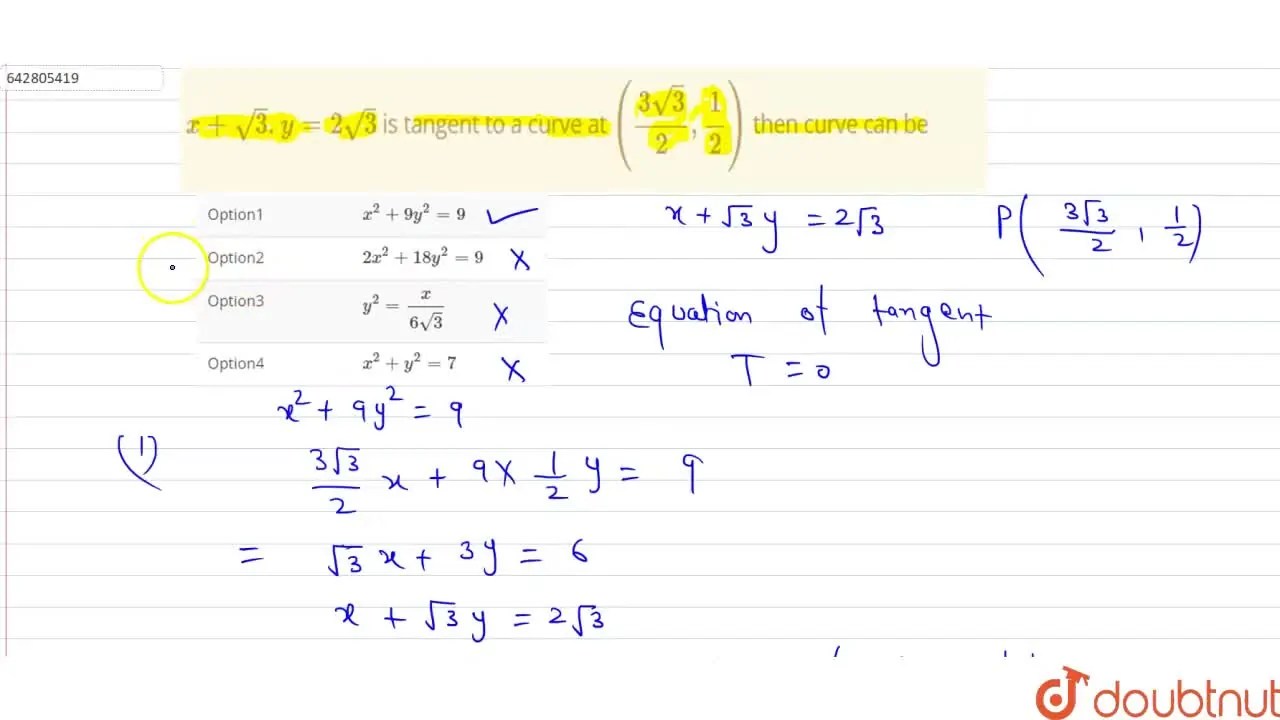 642805419
x + √3. y = 2√3 is tangent to a curve at (3√3/2, 1/2) then curve can be
Option1 x² + 9y² = 9 ✓
Option2 2x² + 18y² = 9 X
Option3 y² = x/6√3 X
Option4 x² + y² = 7 X
x + √3 y = 2√3 P(3√3/2, 1/2)
Equation of tangent
T = 0
x² + 9y² = 9
(1) 3√3/2 x + 9 × 1/2 y = 9
= √3 x + 3y = 6
x + √3 y = 2√3
doubtnut